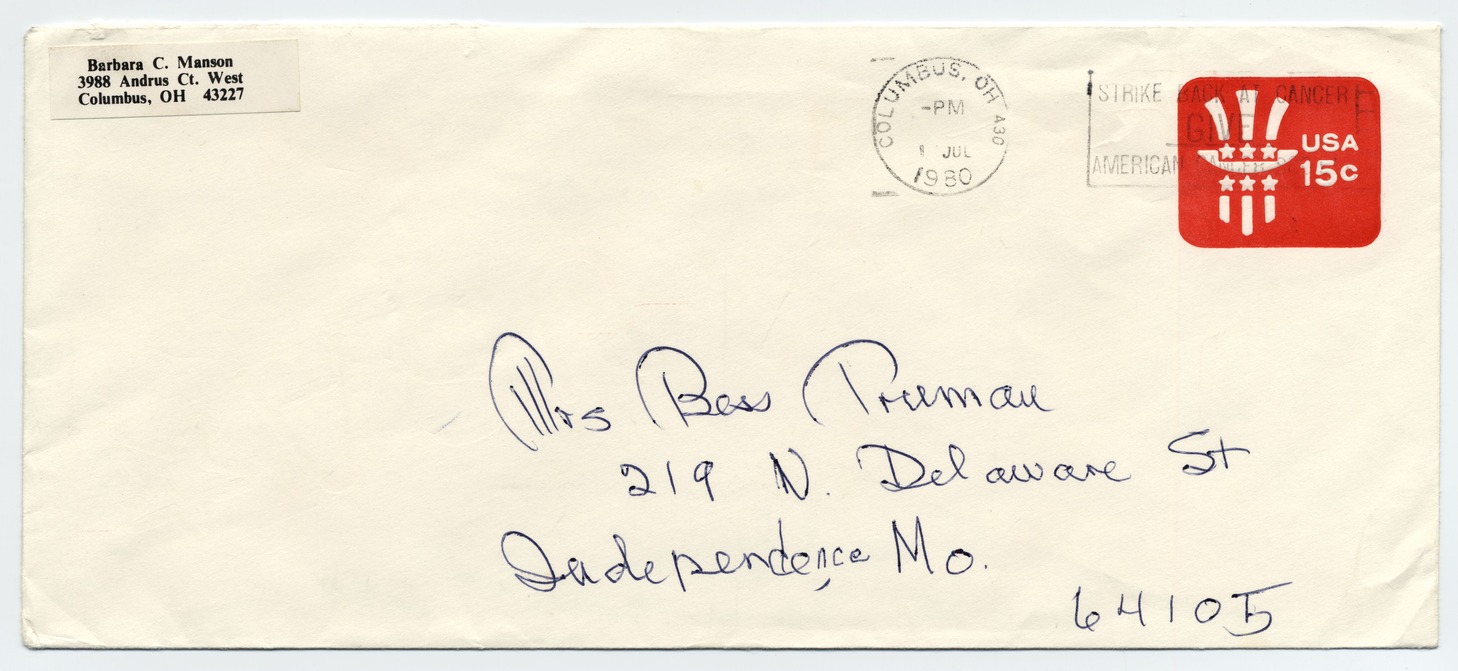 Barbara C. Manson
3988 Andrus Ct. West
Columbus, OH 43227
COLUMBUS, OH 430
-PM
JUL
1980
STRIKE BACK AT CANCER
GIVE
AMERICAN CANCER
USA
15c
Mrs Bess Truman
219 N. Delaware St
Independence, Mo.
64105